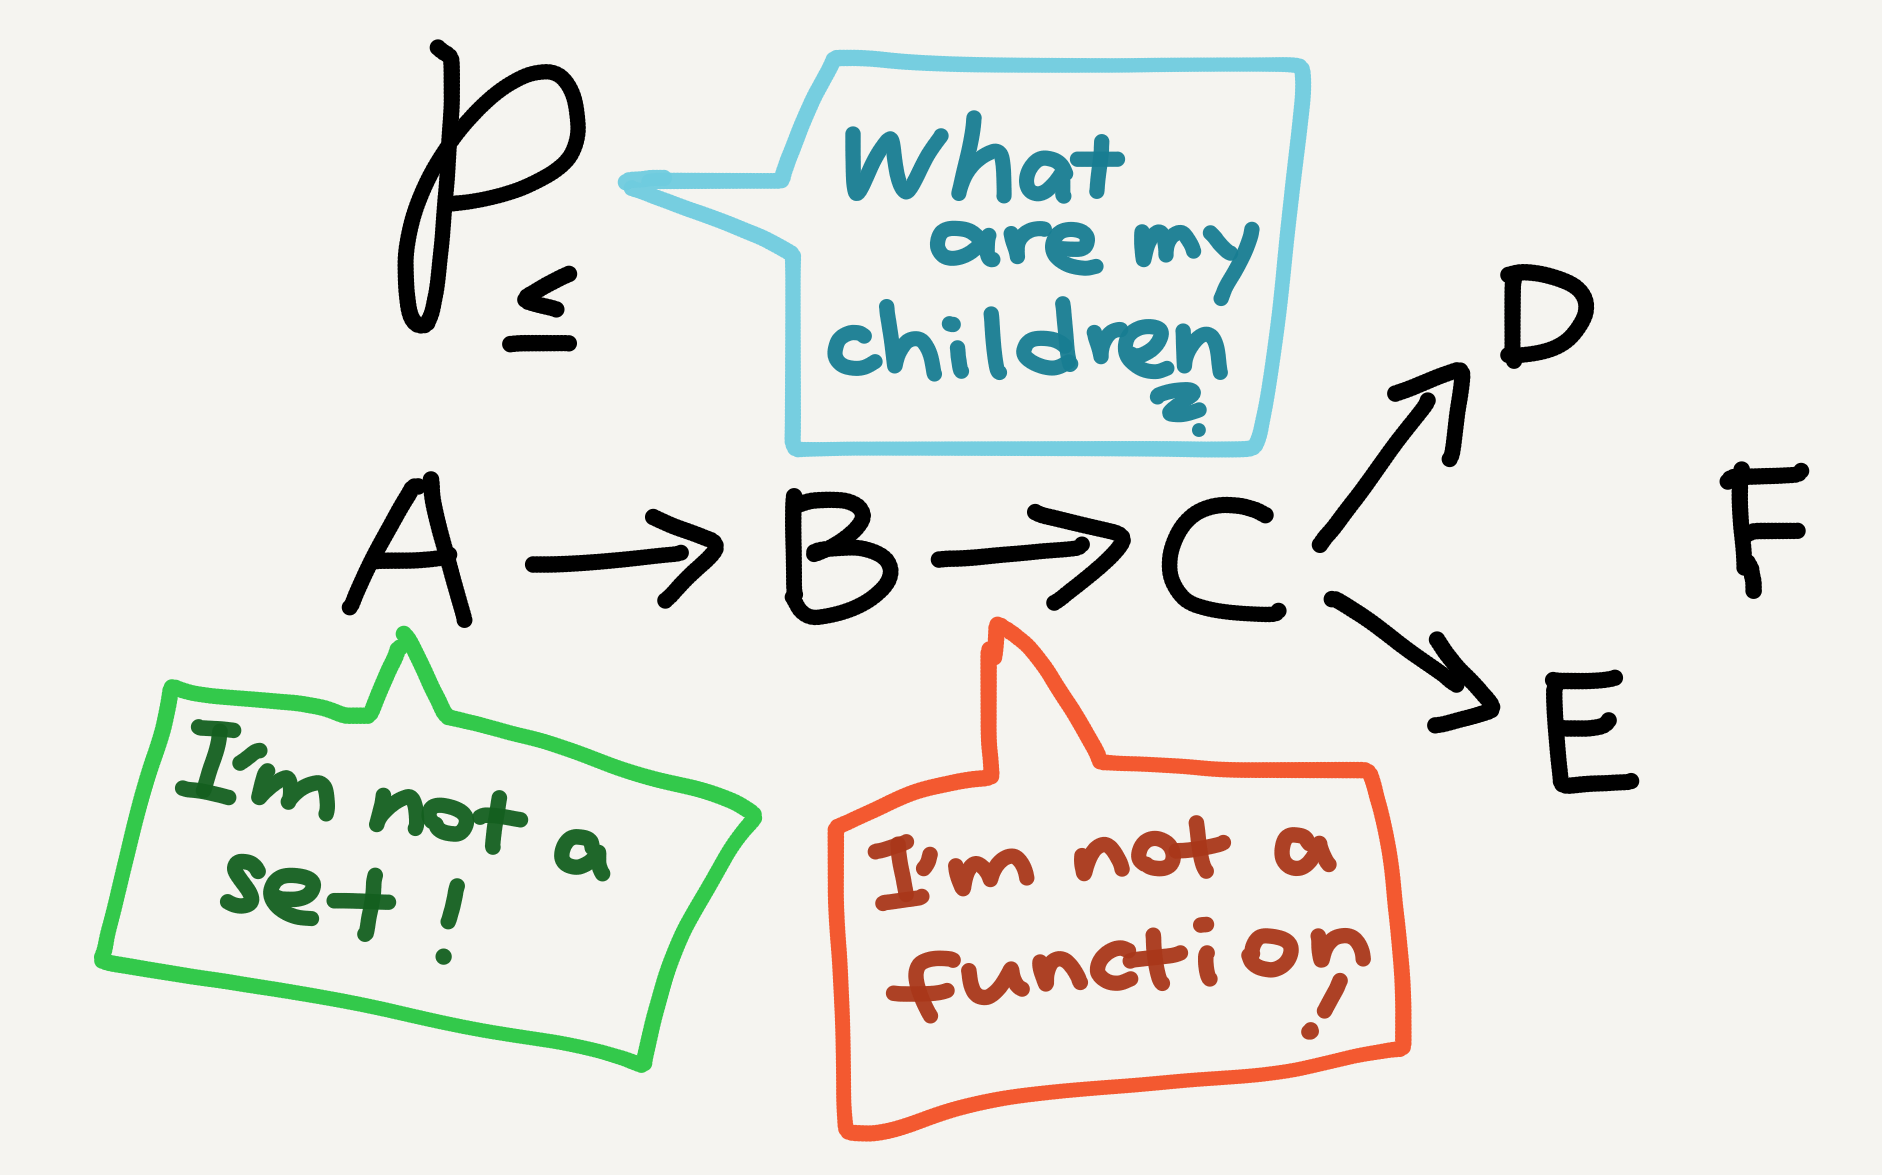 P
≤
What
are my
children
?
D
A → B → C
F
E
I'm not a
set!
I'm not a
function!